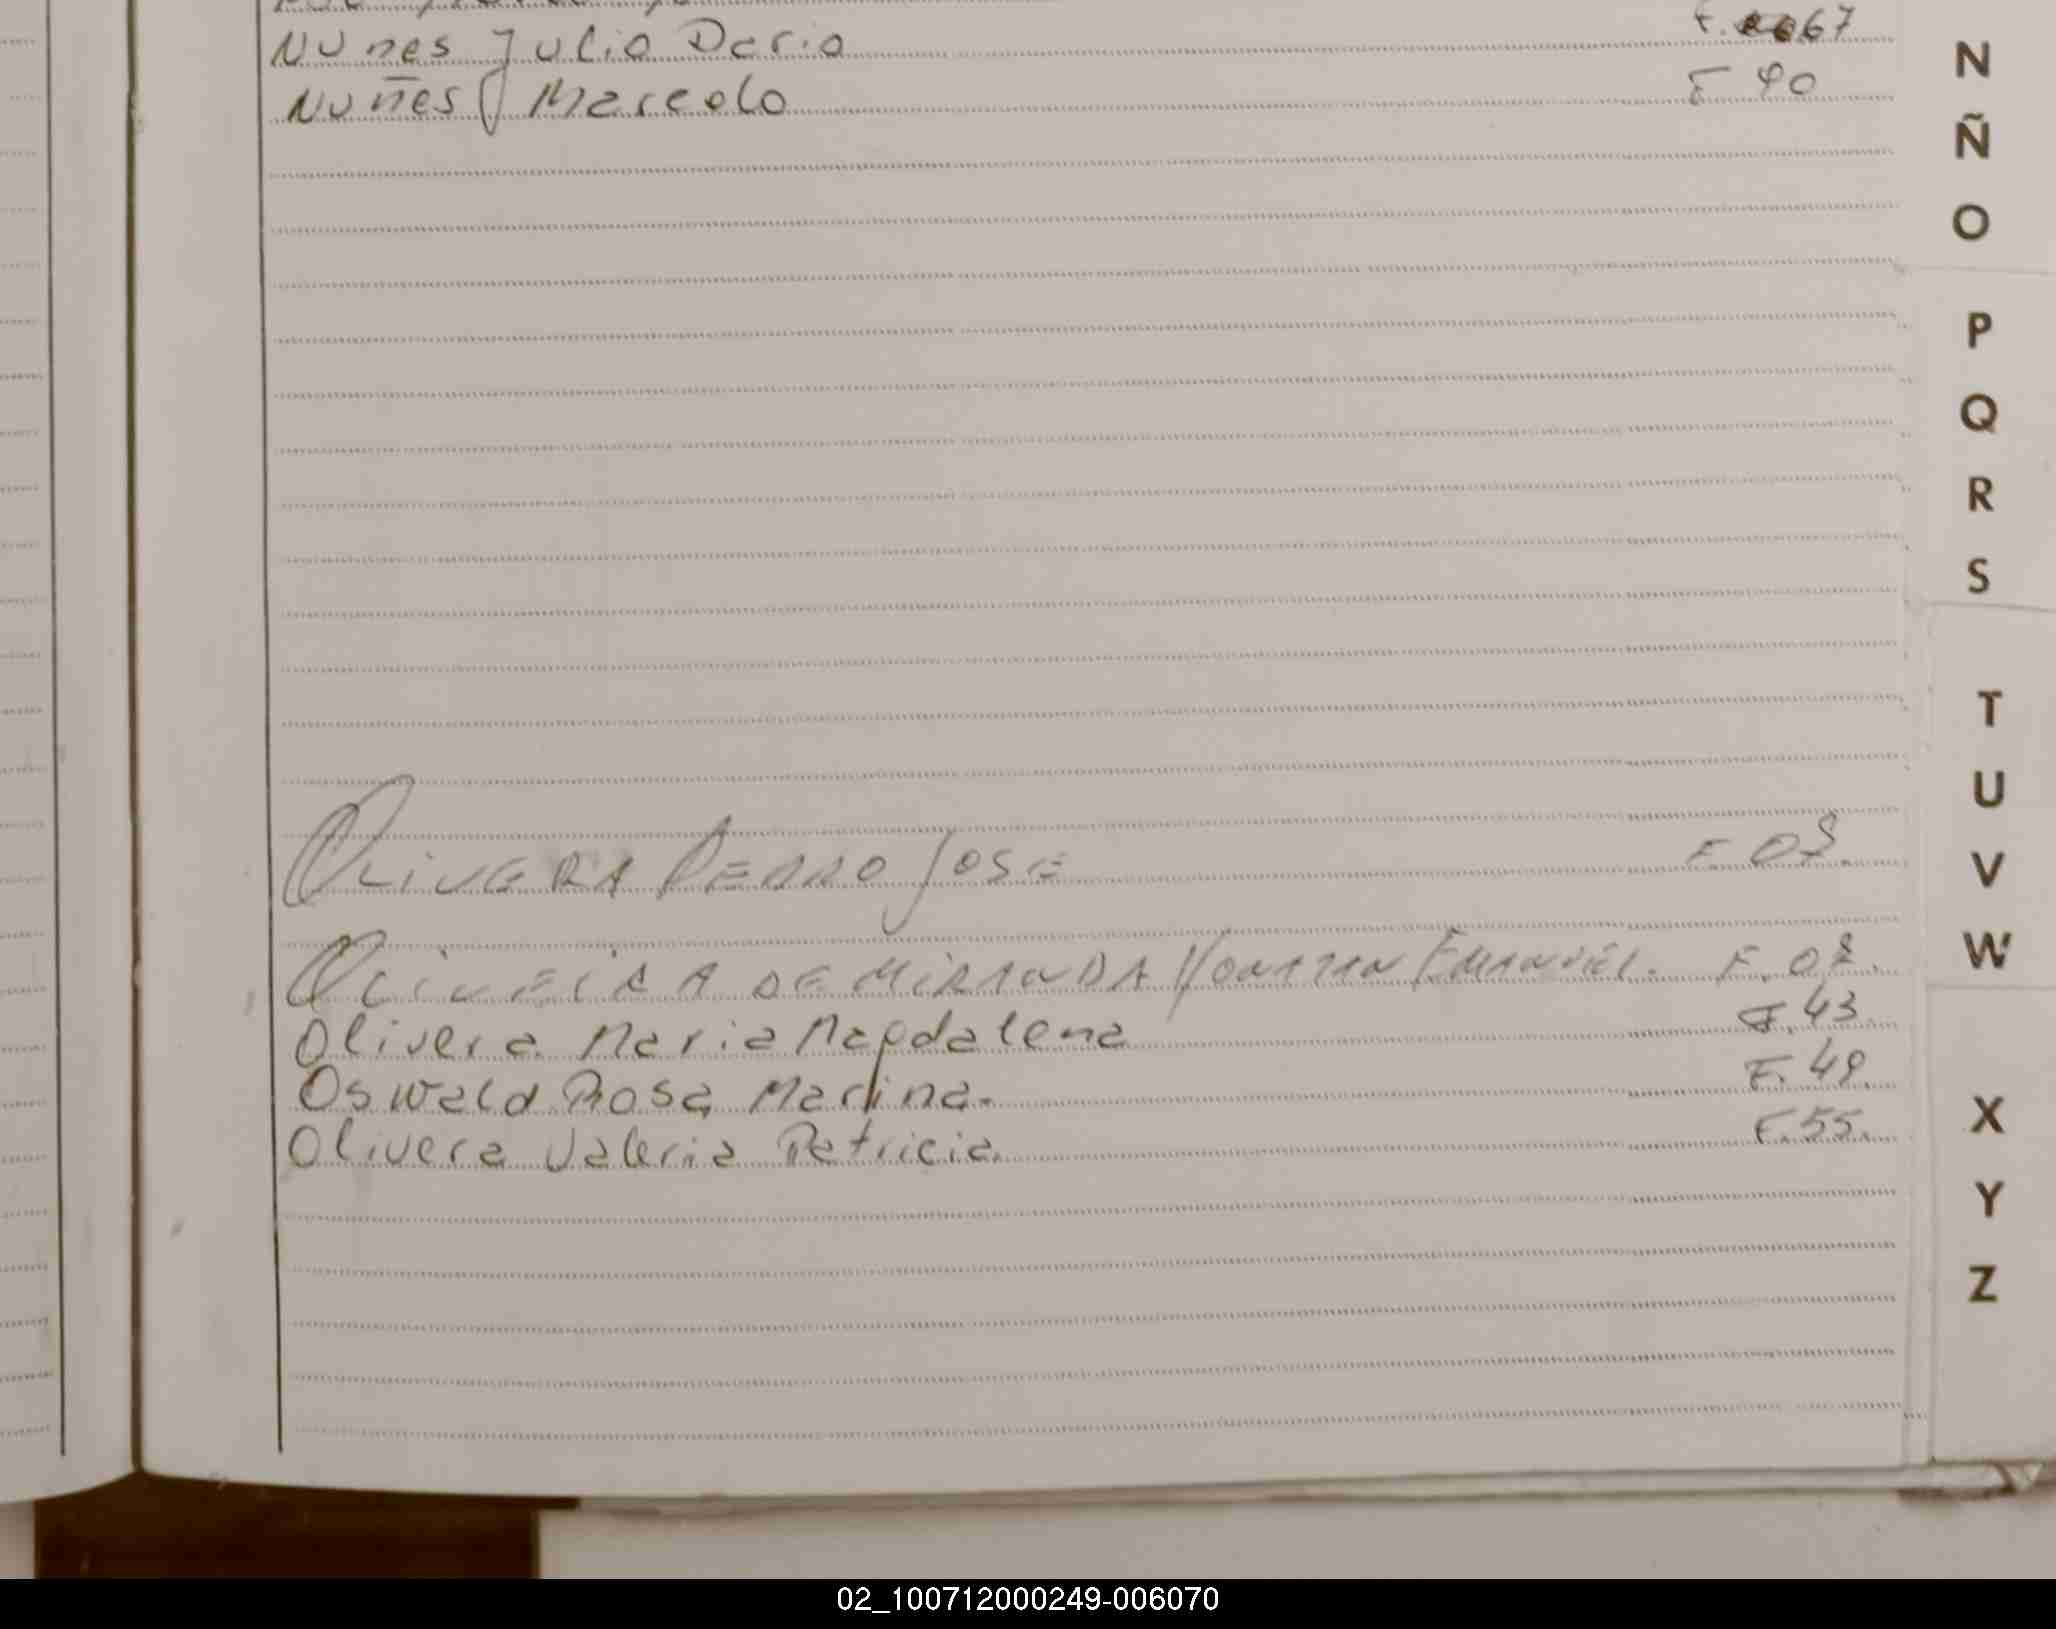 Nunes Julio Dario F. 67
Nuñes Marcelo F 90
OLIVERA PEDRO JOSE F. 08.
OLIVEIRA DE MIRANDA YONATAN EMANUEL. F. 08.
Olivera Maria Magdalena F. 43.
Oswald Rosa Marina. F. 49.
Olivera Valeria Patricia. F. 55.
N
Ñ
O
P
Q
R
S
T
U
V
W
X
Y
Z
02_100712000249-006070